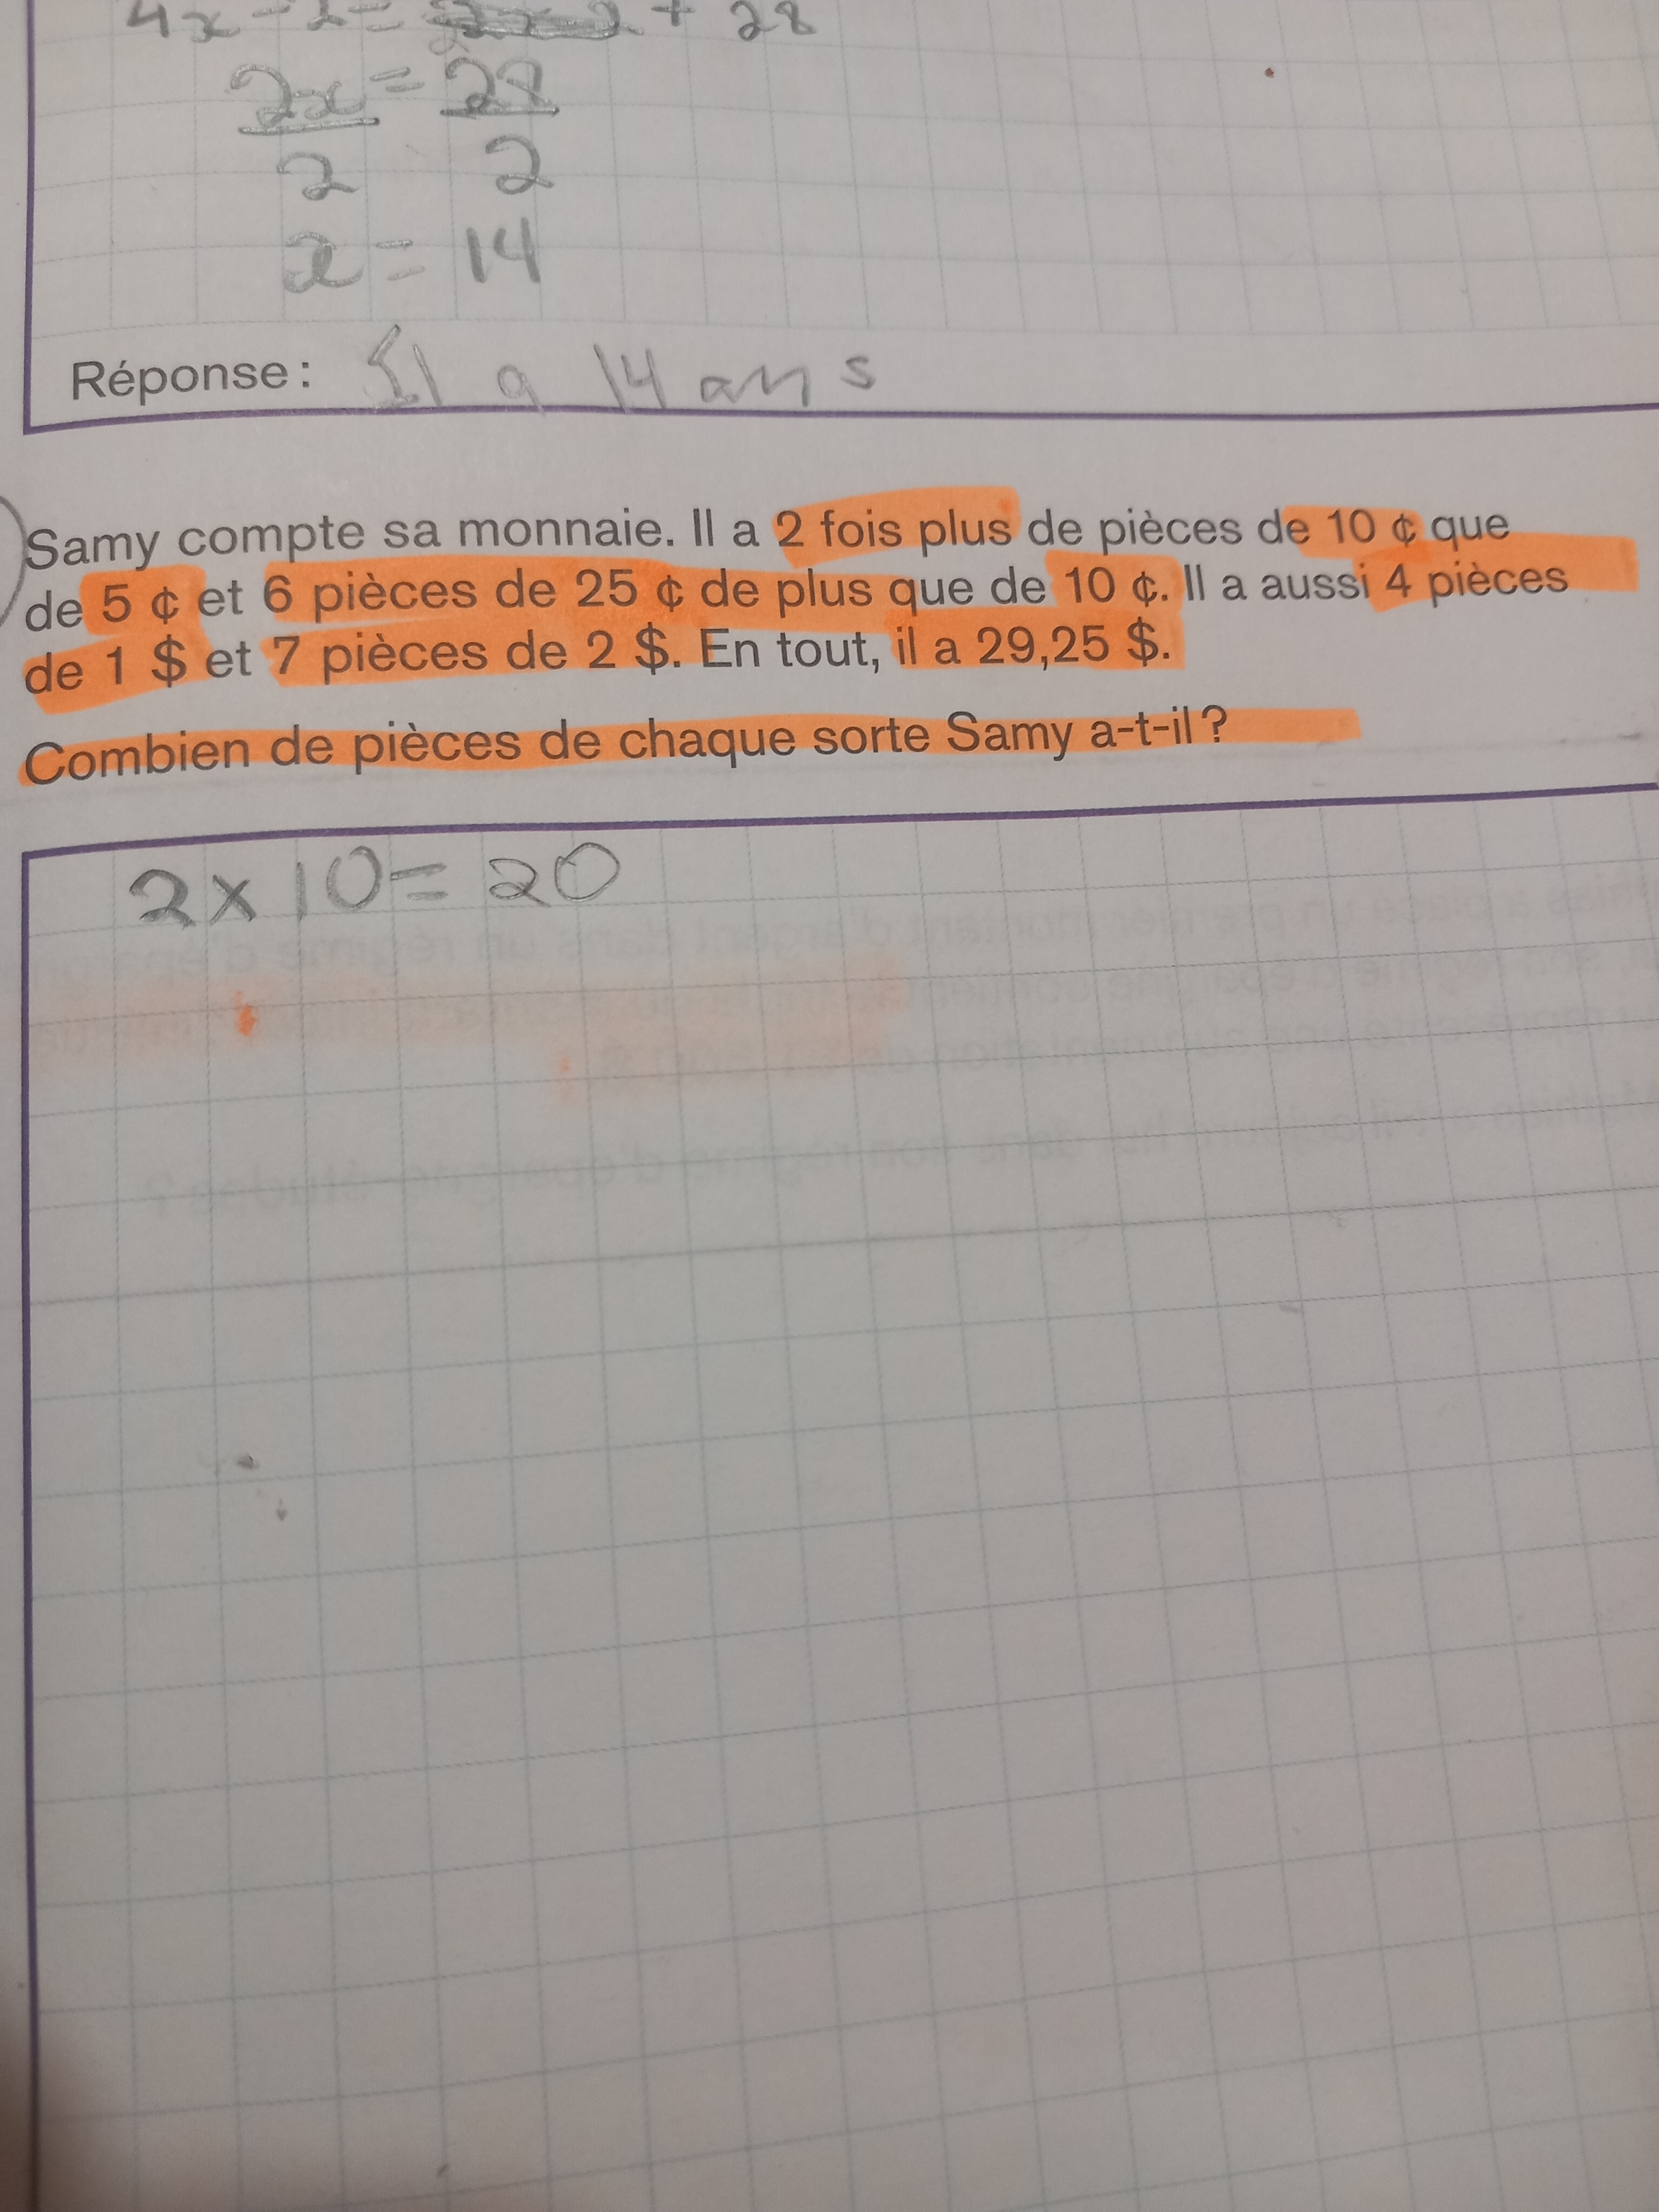 4x - 2 = + 28
2x = 28
2 2
x = 14
Réponse : Il a 14 ans
Samy compte sa monnaie. Il a 2 fois plus de pièces de 10 ¢ que
de 5 ¢ et 6 pièces de 25 ¢ de plus que de 10 ¢. Il a aussi 4 pièces
de 1 $ et 7 pièces de 2 $. En tout, il a 29,25 $.
Combien de pièces de chaque sorte Samy a-t-il ?
2 x 10 = 20